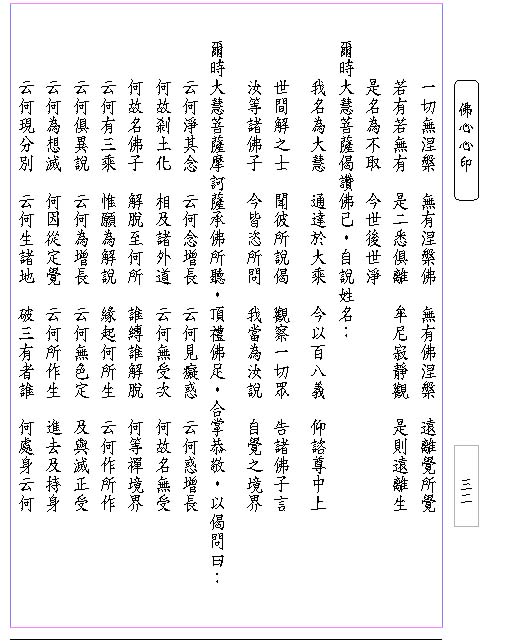 佛心心印
一切無涅槃　無有涅槃佛　無有佛涅槃　遠離覺所覺
若有若無有　是二悉俱離　牟尼寂靜觀　是則遠離生
是名為不取　今世後世淨
爾時大慧菩薩偈讚佛已，自說姓名：
我名為大慧　通達於大乘　今以百八義　仰諮尊中上
世間解之士　聞彼所說偈　觀察一切眾　告諸佛子言
汝等諸佛子　今皆恣所問　我當為汝說　自覺之境界
爾時大慧菩薩摩訶薩承佛所聽，頂禮佛足，合掌恭敬，以偈問曰：
云何淨其念　云何念增長　云何見癡惑　云何惑增長
何故剎土化　相及諸外道　云何無受次　何故名無受
何故名佛子　解脫至何所　誰縛誰解脫　何等禪境界
云何有三乘　惟願為解說　緣起何所生　云何作所作
云何俱異說　云何為增長　云何無色定　及與滅正受
云何為想滅　何因從定覺　云何所作生　進去及持身
云何現分別　云何生諸地　破三有者誰　何處身云何
三二